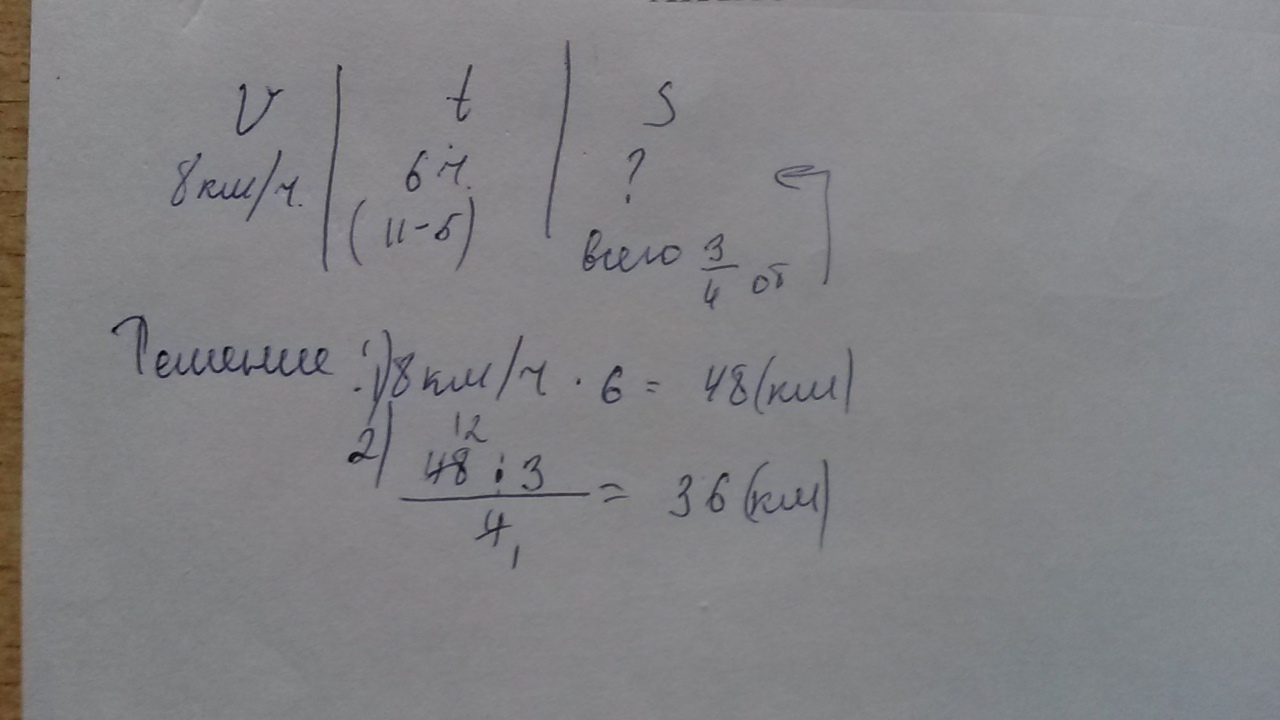 V t S
8км/ч. 6 ч. ?
(11-5)
всего 3/4 от
Решение: 1) 8км/ч · 6 = 48(км)
12
2) 48 : 3
4 = 36(км)
1